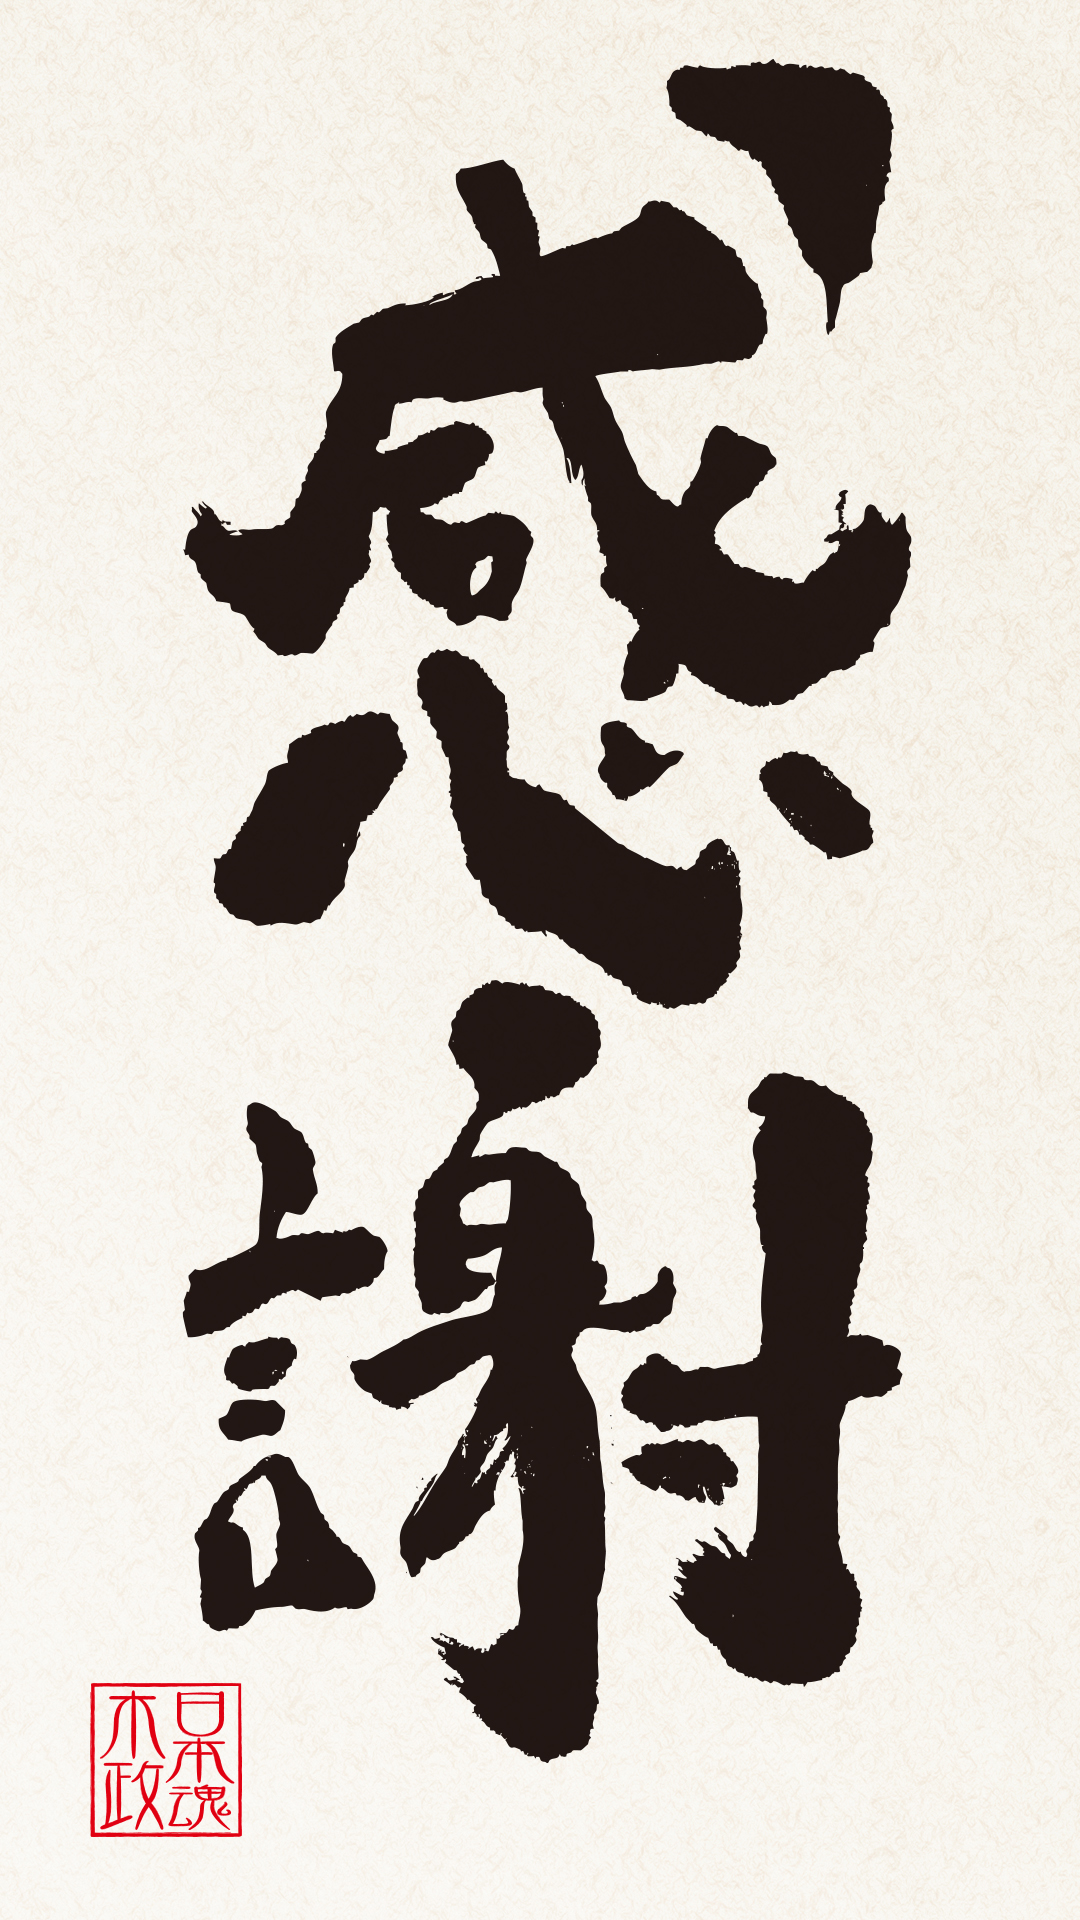 感謝
日本魂
木政